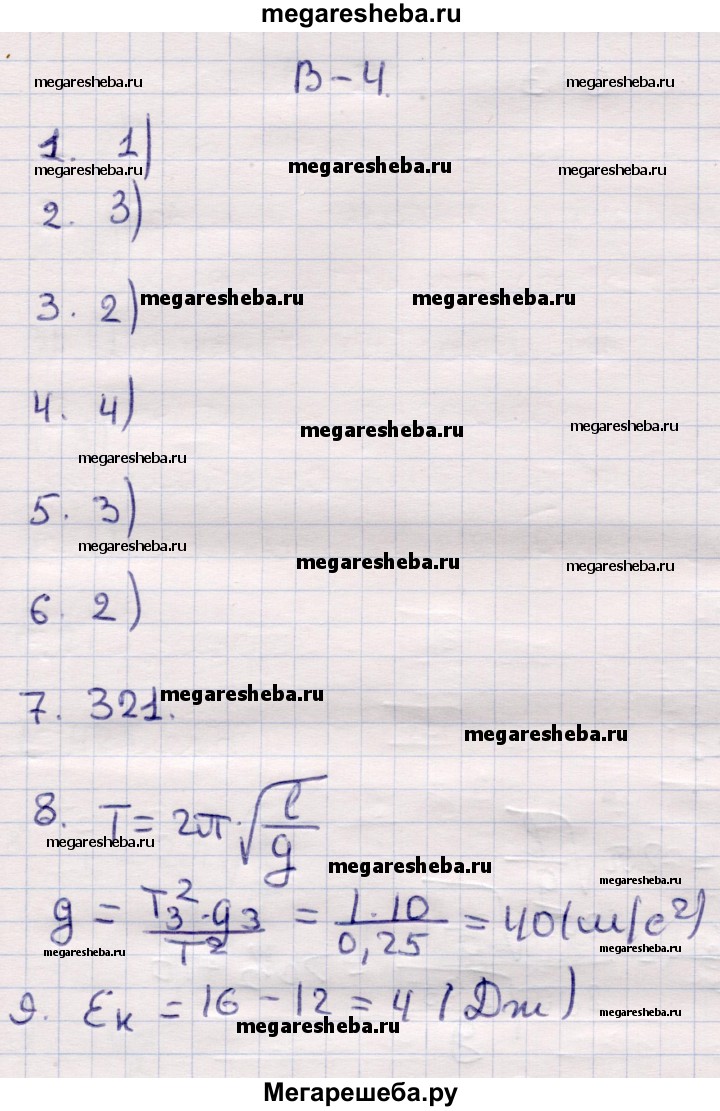 megaresheba.ru
В-4.
megaresheba.ru megaresheba.ru
1. 1)
megaresheba.ru megaresheba.ru megaresheba.ru
2. 3)
3. 2) megaresheba.ru megaresheba.ru
4. 4)
megaresheba.ru megaresheba.ru
megaresheba.ru
5. 3)
megaresheba.ru megaresheba.ru megaresheba.ru
6. 2)
7. 321. megaresheba.ru
megaresheba.ru
8. T = 2π·√(l/g)
megaresheba.ru megaresheba.ru
g = (T₃²·g₃)/T² = (1·10)/0,25 = 40 (м/с²)
megaresheba.ru megaresheba.ru
9. Eк = 16 - 12 = 4 (Дж)
megaresheba.ru megaresheba.ru
Мегарешеба.ру